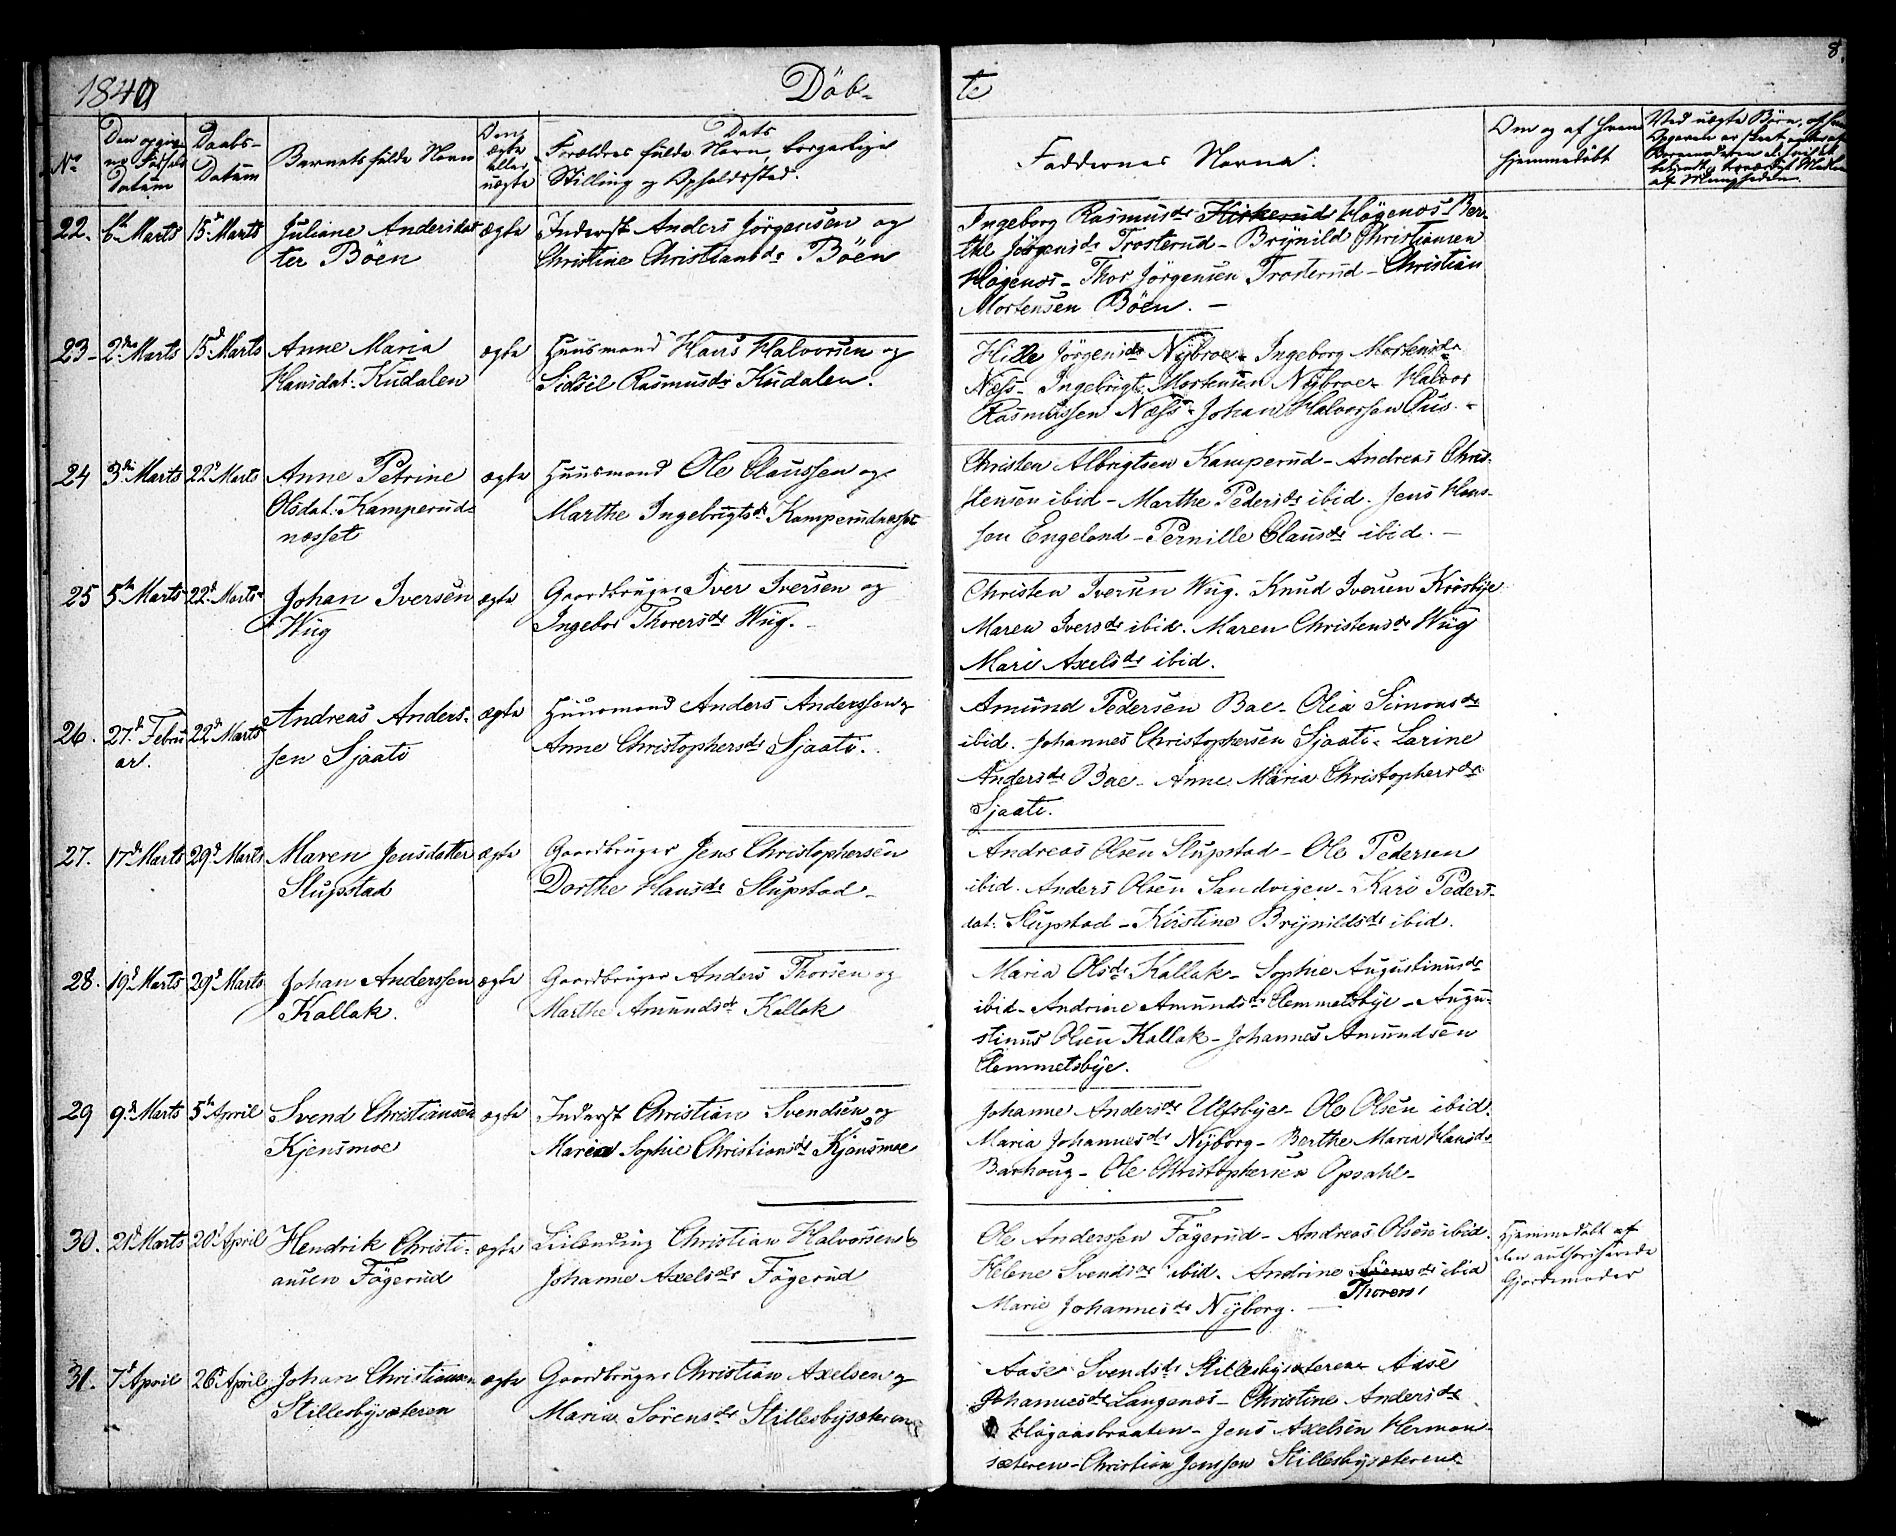 1840
Döb-
te
8.
No
Den opgiv-
ne Födsels
Datum
Daabs-
Datum
Barnets fulde Navn
Om
ægte
eller
uægte
Dats
Forældres fulde Navn, borgerlige
Stilling og Opholdssted.
Faddernes Navne.
Om og af hvem
hjemmedöbt
Ved uægte Börn, af
22. 6te Marts 15de Marts Juliane Andersdat- ægte Inderst Anders Jörgensen og
ter Böen Christine Christiansdr Böen
Ingeborg Rasmusdr Kirkerud Högenes Ber-
the Jörgensdr Trosterud - Brynild Christiansen
Högenes - Thor Jörgensen Trosterud - Christian
Mortensen Böen. -
23 - 2den Marts 15de Marts Anne Maria ægte Huusmand Hans Halvorsen og
Hansdat: Kudalen Sidsel Rasmusdr Kudalen.
Hille Jörgensdr Nybroe - Ingeborg Mortensdr
Næss - Ingebrigt Mortensen Nybroe - Halvor
Rasmussen Næss - Johan Halvorssen Aus. -
24 3die Marts 22de Marts Anne Petrine ægte Huusmand Ole Claussen og
Olsdat: Kamperud- Marthe Ingebrigtsdr Kamperudnæsset
næsset
Christen Albrigtsen Kamperud - Andreas Chris-
tensen ibid - Marthe Pedersdr ibid. Jens Hans-
sen Engeland - Pernille Clausdr ibid. -
25 5te Marts 22de Marts Johan Iversen ægte Gaardbruger Iver Iversen og
Wüg Ingebor Thorersdr Wüg. -
Christen Iversen Wüg. Knud Iversen Krosbye
Maren Iversdr ibid. Maren Christensdr Wüg
Mari Axelsdr ibid.
26. 27de Febru- 22de Marts Andreas Anders- ægte Huusmand Anders Anderssen og
ar. sen Sjaati Anne Christophersdr Sjaati.
Amund Pedersen Bae - Olea Simonsdr
ibid. Johannes Christophersen Sjaati - Larine
Andersdr Bae - Anne Maria Christophersdr
Sjaati.
27. 17de Marts 29de Marts Maren Jensdatter ægte Gaardbruger Jens Christophersen
Slupstad Dorthe Hansdr Slupstad -
Andreas Olsen Slupstad - Ole Pedersen
ibid. Anders Olsen Sandvigen - Kari Peders-
dat: Slupstad - Kirstine Brynildsdr ibid.
28. 19de Marts 29de Marts Johan Anderssen ægte Gaardbruger Anders Thorsen og
Kallak. Marthe Amundsdr Kallak
Maria Olsdr Kallak - Sophie Augustinusdr
ibid - Andrine Amundsdr Clemmetsbye - Augu-
stinus Olsen Kallak - Johannes Amundsen
Clemmetsbye.
29 9de Marts 5te April Svend Christiansen ægte Inderst Christian Svendsen og
Kjensmoe Maria Sophie Christiansdr Kjensmoe
Johanne Andersdr Ulfsbye - Ole Olsen ibid.
Maria Johannesdr Nyborg - Berthe Maria Hansdr
Barhoug - Ole Christophersen Opsahl -
30. 21de Marts 20de April Hendrik Christi- ægte Leilending Christian Halvorsen &
ansen Fögerud Johanne Axelsdr Fögerud
Ole Anderssen Fögerud - Andreas Olsen ibid.
Helene Svendsdr ibid. Andrine Thorersdr ibid
Marie Johannesdr Nyborg. -
Hjemmedöbt af
den authoriserede
Gjordemoder
31. 7de April 26de April Johan Christiansen ægte Gaardbruger Christian Axelsen og
Stillesbysæteren Maria Sörensdr Stillesbysæteren
Aase Svendsdr Stillesbysæteren - Aase
Johannesdr Langenes - Christine Andersdr
Högaasbraaten - Jens Axelsen Herman-
sæteren - Christian Jenssen Stillesbysæteren -